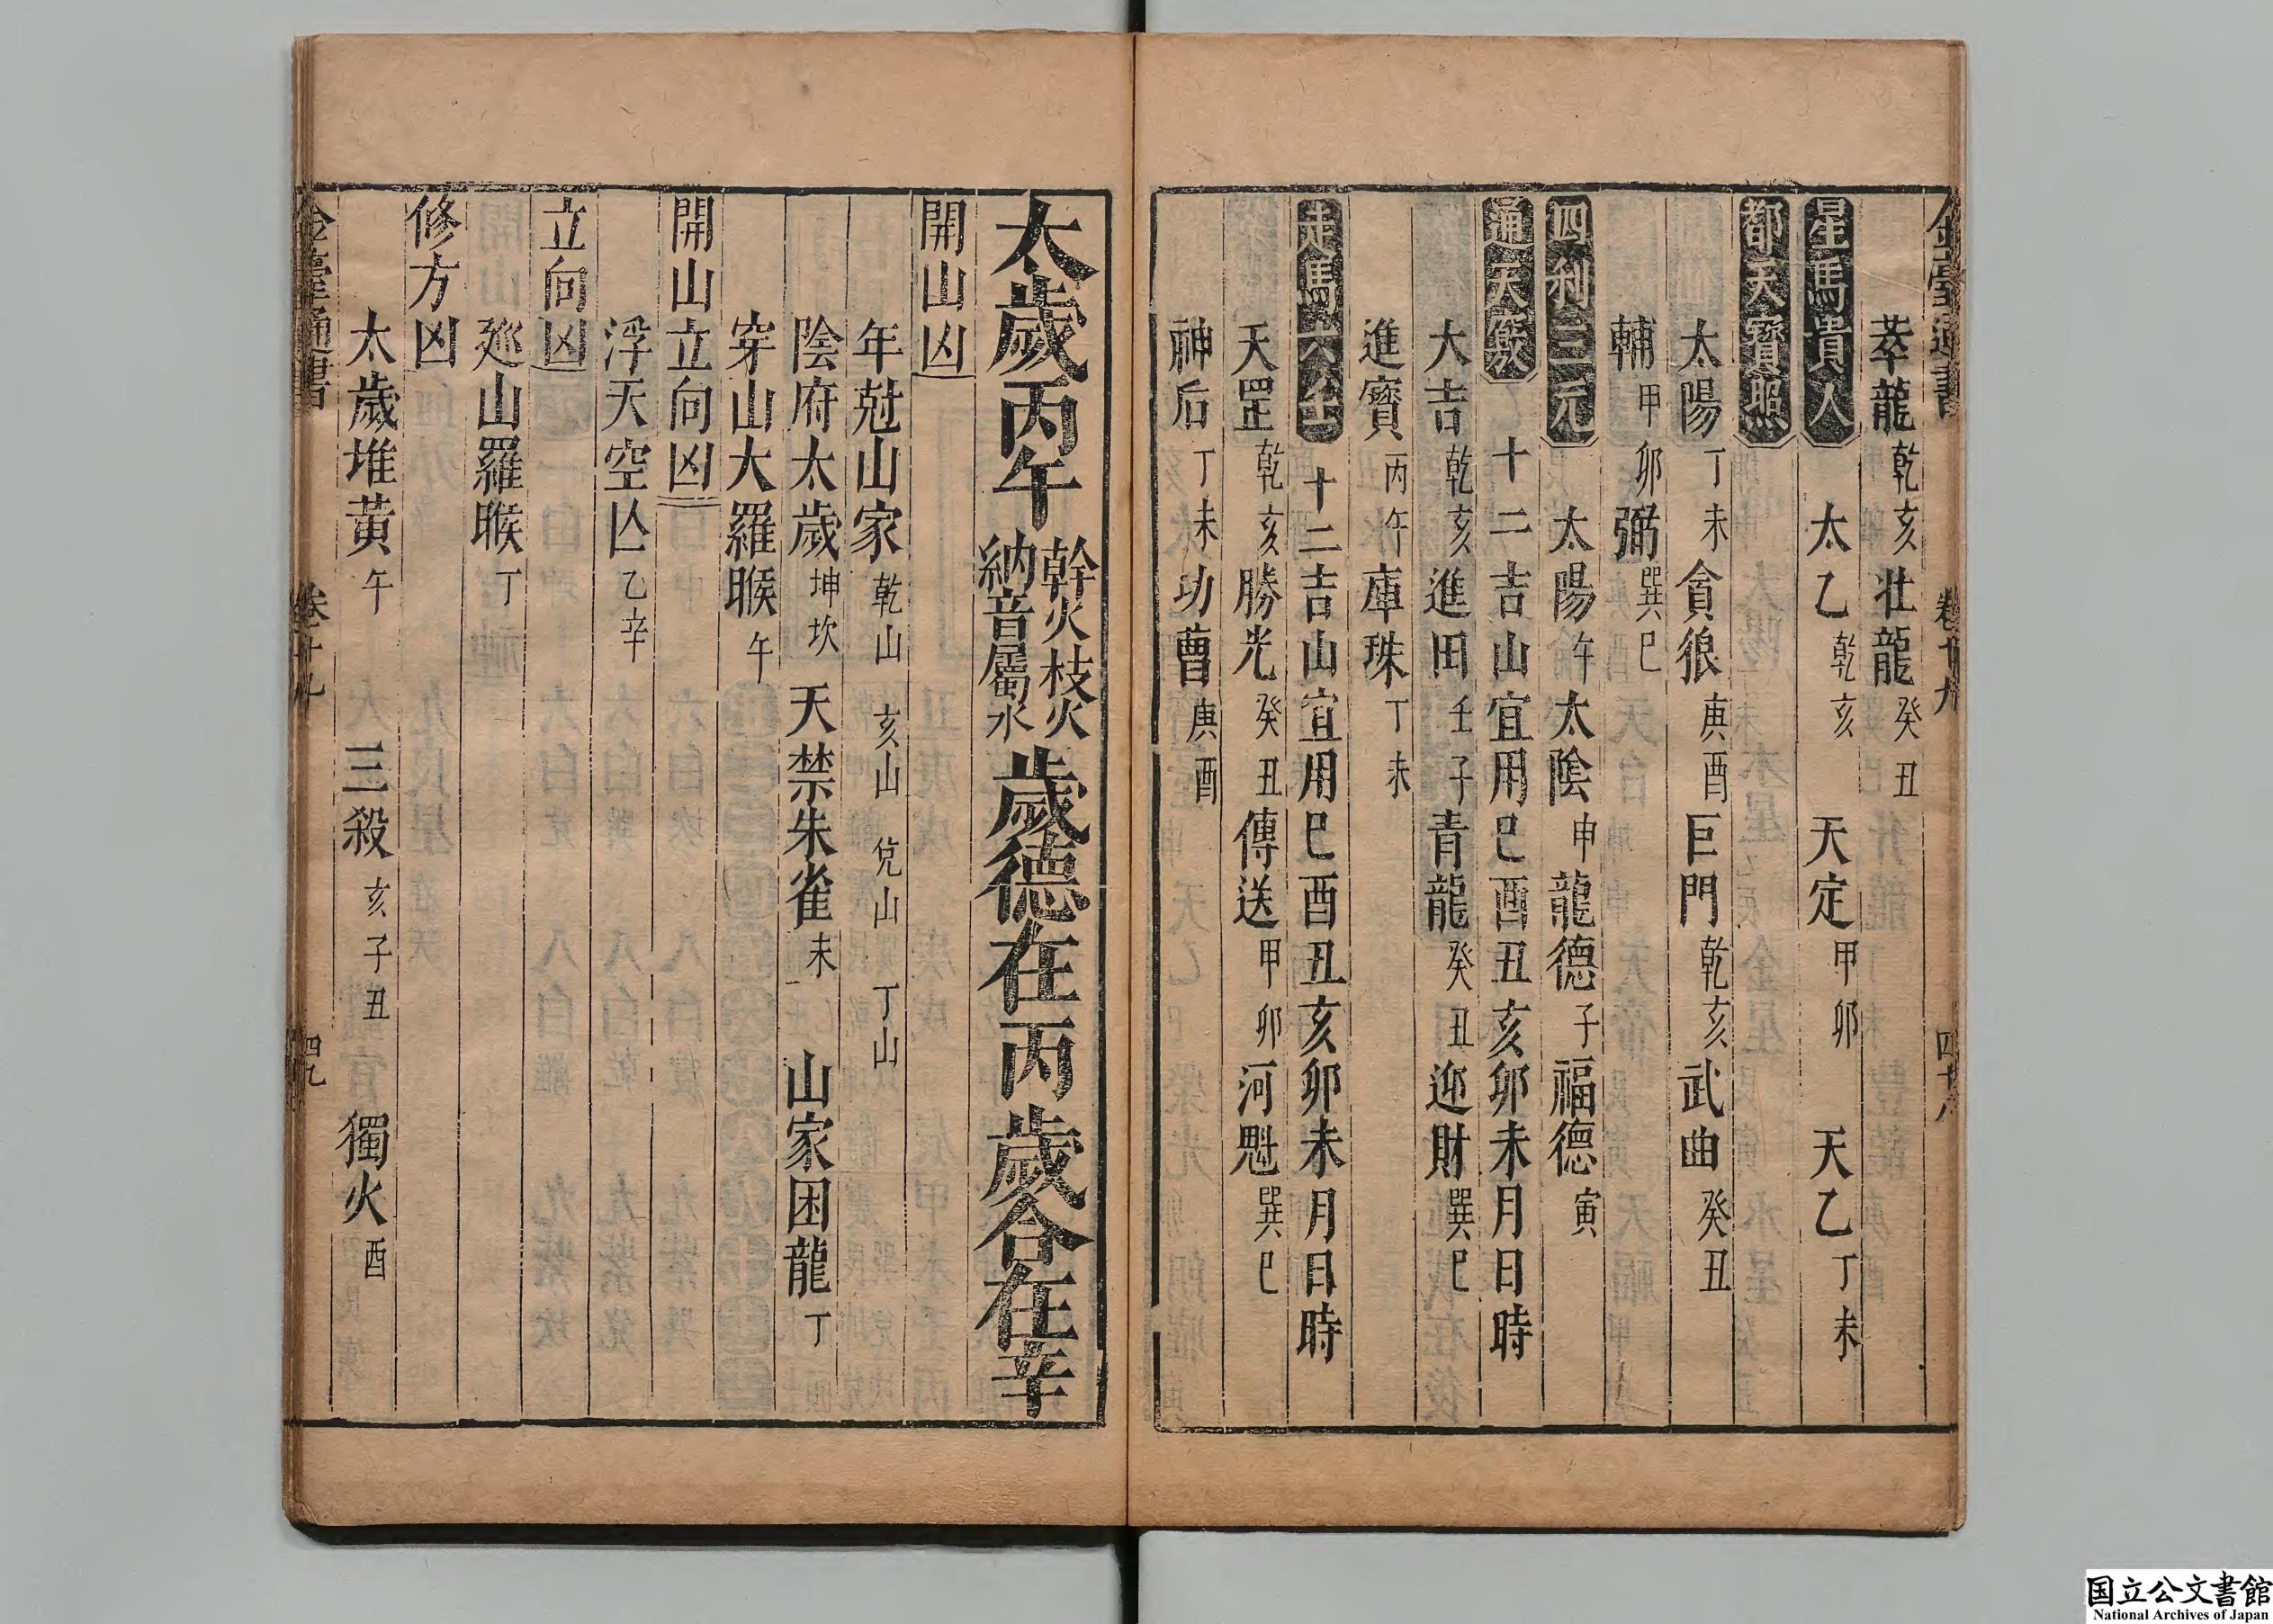 金臺通書 卷十九 四十八
萃龍 乾亥 壮龍 癸丑
星馬貴人 太乙 乾亥 天定 甲卯 天乙 丁未
都天寳照
太陽 丁未 貪狼 庚酉 巨門 乾亥 武曲 癸丑
輔 甲卯 弼 巽巳
四利三元 太陽 午 太陰 申 龍德 子 福德 寅
通天竅 十二吉山宜用巳酉丑亥卯未月日時
大吉 乾亥 進田 壬子 青龍 癸丑 迎財 巽巳
進寳 丙午 庫珠 丁未
走馬六壬 十二吉山宜用巳酉丑亥卯未月日時
天罡 乾亥 勝光 癸丑 傳送 甲卯 河魁 巽巳
神后 丁未 功曹 庚酉
太歲丙午 幹火枝火 納音屬水 歲德在丙 歲合在辛
開山凶
年尅山家 乾山 亥山 兌山 丁山
陰府太歲 坤坎 天禁朱雀 未 山家困龍 丁
穿山大羅睺 午
開山立向凶
浮天空亾 乙辛
立向凶
廵山羅睺 丁
修方凶
太歲堆黃 午 三殺 亥子丑 獨火 酉
金臺通書 卷十九 四九
国立公文書館
National Archives of Japan